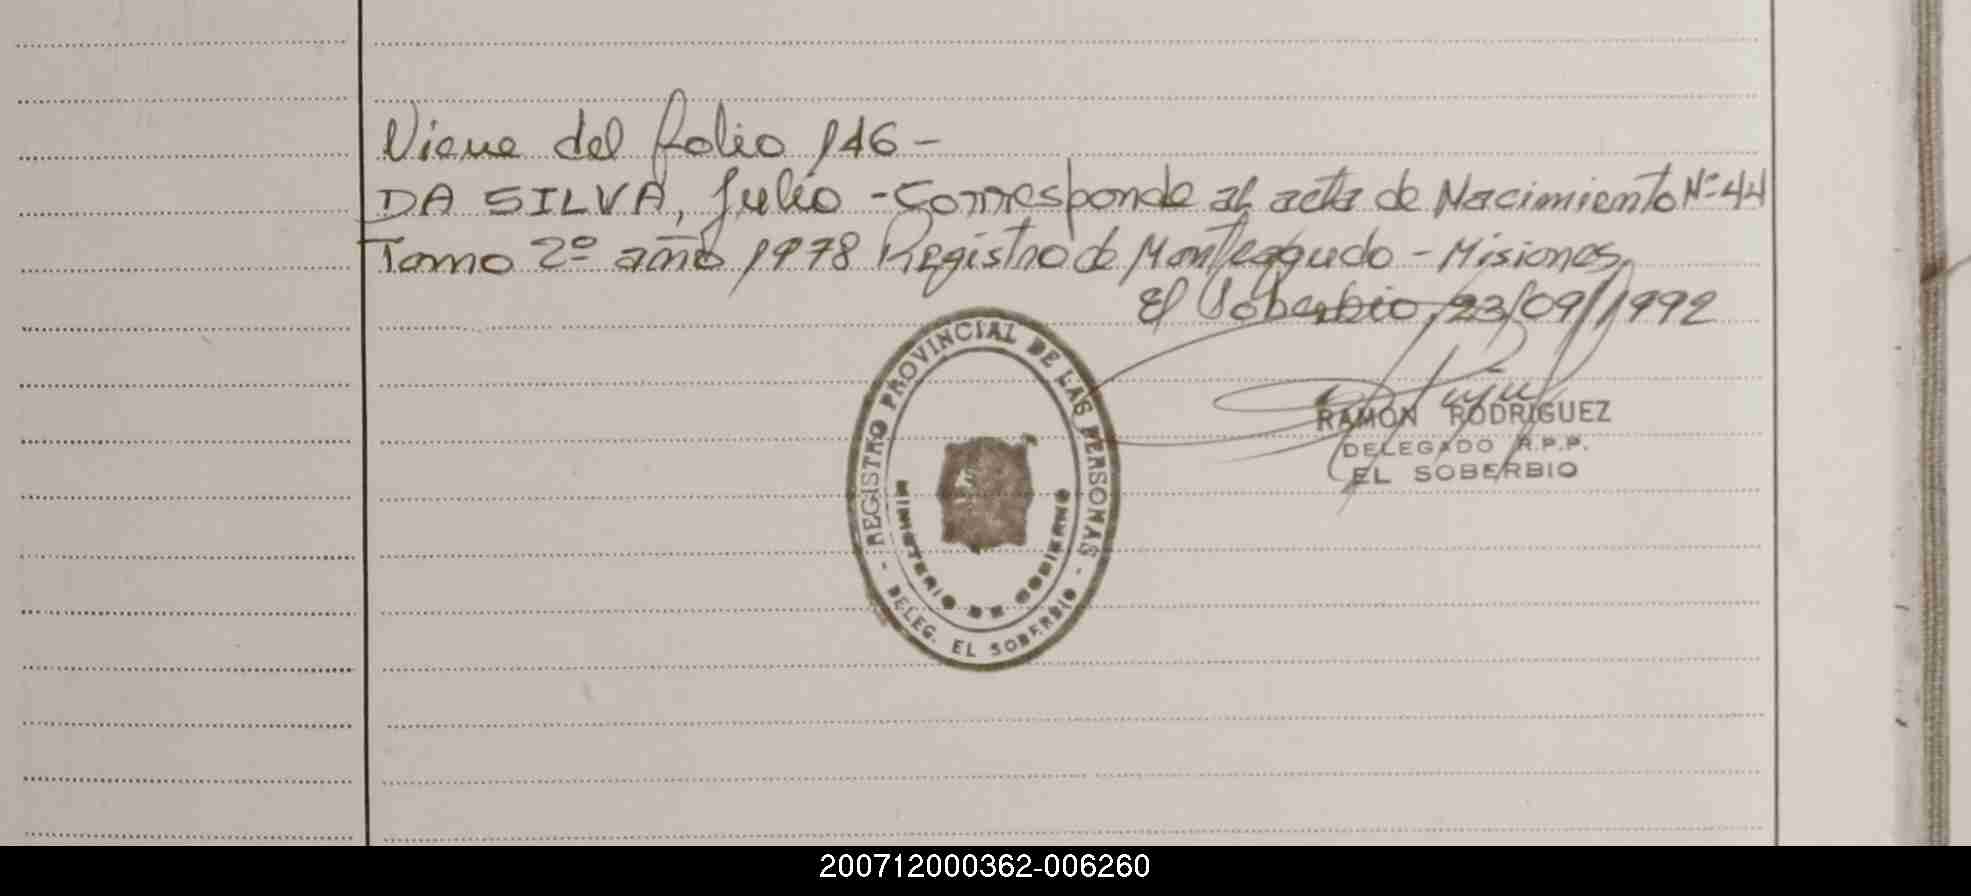 Viene del folio 146 -
DA SILVA, Julio - Corresponde al acta de Nacimiento Nº 44
Tomo 2º año 1978 Registro de Monteagudo - Misiones.
El Soberbio, 23/09/1992
REGISTRO PROVINCIAL DE LAS PERSONAS
MINISTERIO DE GOBIERNO
- DELEG. EL SOBERBIO -
RAMON RODRIGUEZ
DELEGADO R.P.P.
EL SOBERBIO
200712000362-006260